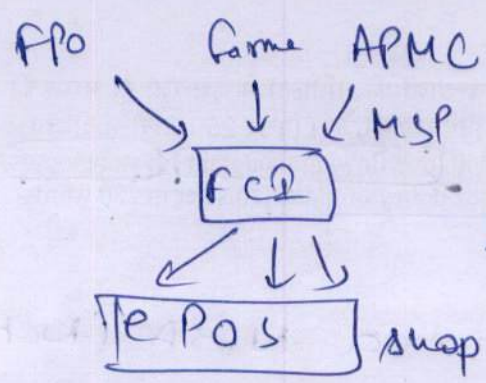 FPO Farme APMC
MSP
FCI
ePOS shop